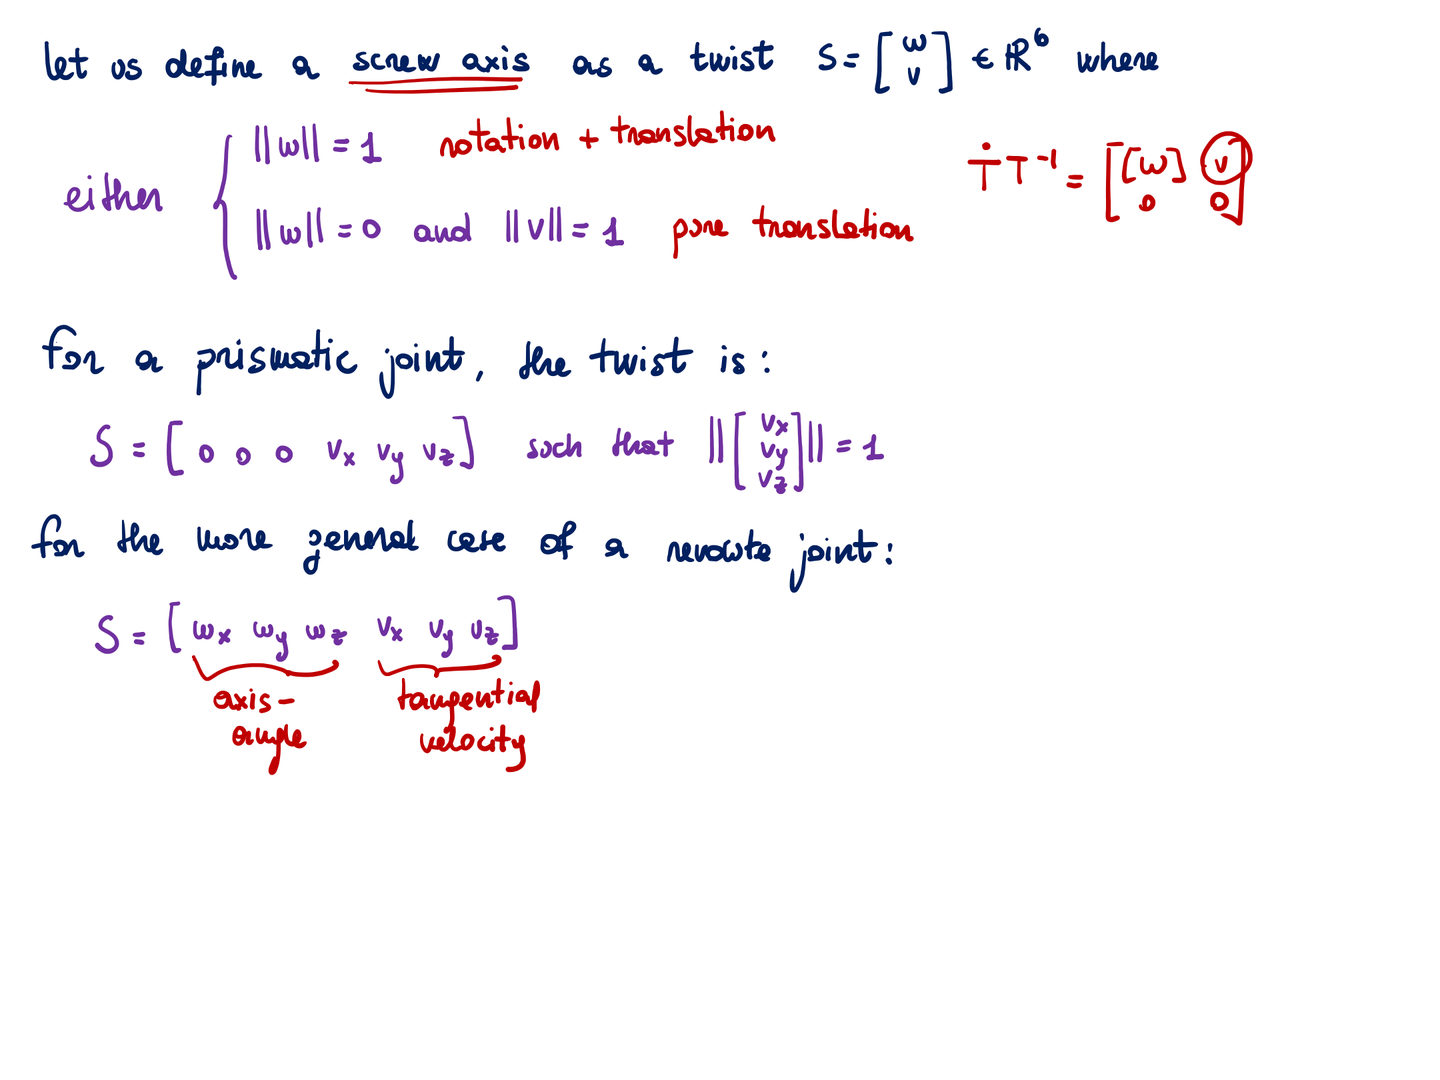 let us define a screw axis as a twist S = [ω v] ∈ ℝ⁶ where
either { ||ω|| = 1 rotation + translation
||ω|| = 0 and ||v|| = 1 pure translation
Ṫ T⁻¹ = [[ω] v 0 0]
for a prismatic joint, the twist is:
S = [ 0 0 0 vx vy vz ] such that ||[vx vy vz]|| = 1
for the more general case of a revolute joint:
S = [ ωx ωy ωz vx vy vz ]
axis-angle
tangential velocity